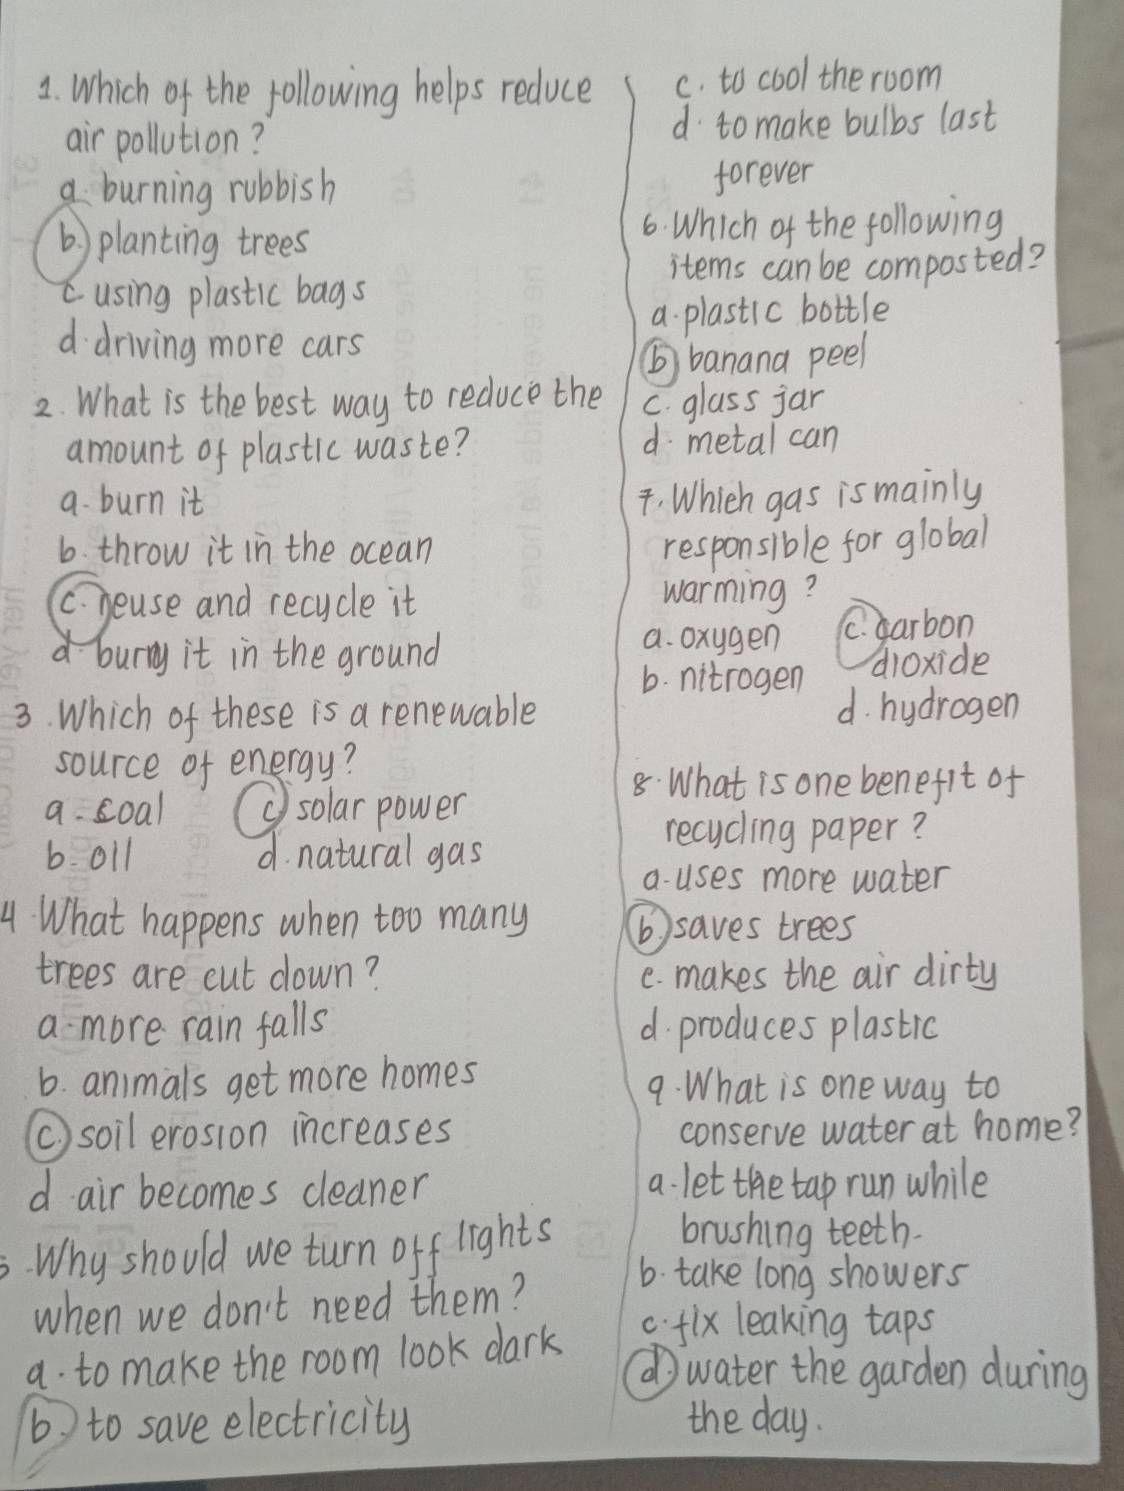 1. Which of the following helps reduce
air pollution?
a. burning rubbish
b. planting trees
c using plastic bags
d. driving more cars
2. What is the best way to reduce the
amount of plastic waste?
a. burn it
b. throw it in the ocean
c. reuse and recycle it
d bury it in the ground
3. Which of these is a renewable
source of energy?
a. coal c. solar power
b. oil d. natural gas
4 What happens when too many
trees are cut down?
a. more rain falls
b. animals get more homes
c. soil erosion increases
d. air becomes cleaner
5. Why should we turn off lights
when we don't need them?
a. to make the room look dark
b. to save electricity
c. to cool the room
d. to make bulbs last
forever
6. Which of the following
items can be composted?
a. plastic bottle
b banana peel
c. glass jar
d. metal can
7. Which gas is mainly
responsible for global
warming?
a. oxygen c. carbon
dioxide
b. nitrogen
d. hydrogen
8. What is one benefit of
recycling paper?
a. uses more water
b. saves trees
c. makes the air dirty
d. produces plastic
9. What is one way to
conserve water at home?
a. let the tap run while
brushing teeth.
b. take long showers
c. fix leaking taps
d. water the garden during
the day.